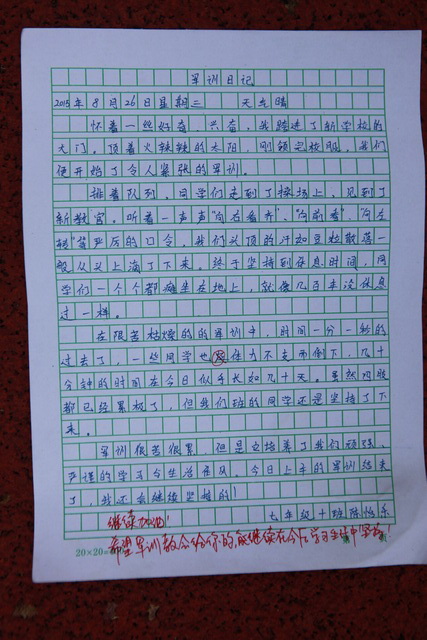 军训日记
2015年8月26日星期三 天气晴
怀着一丝好奇、兴奋，我踏进了新学校的
大门。顶着火辣辣的太阳，刚领完校服，我们
便开始了令人紧张的军训。
排着队列，同学们走到了操场上，见到了
新教官。听着一声声“向右看齐”、“向前看”、“向左
转”等严厉的口令，我们头顶的汗如豆粒散落一
般从头上滴了下来。终于坚持到休息时间，同
学们一个个都瘫坐在地上，就像几百年没休息
过一样。
在艰苦枯燥的的军训中，时间一分一秒的
过去了，一些同学也因体力不支而倒下，几十
分钟的时间在今日似乎长如几十天。虽然四肢
都已经累极了，但我们班的同学还是坚持了下
来。
军训很苦很累，但是它培养了我们顽强、
严谨的学习与生活作风，今日上午的军训结束
了，我还会继续坚持的！
七年级十班陈怡乐
继续加油！
希望军训教会给你的，能继续在今后学习生活中坚持！
20×20=